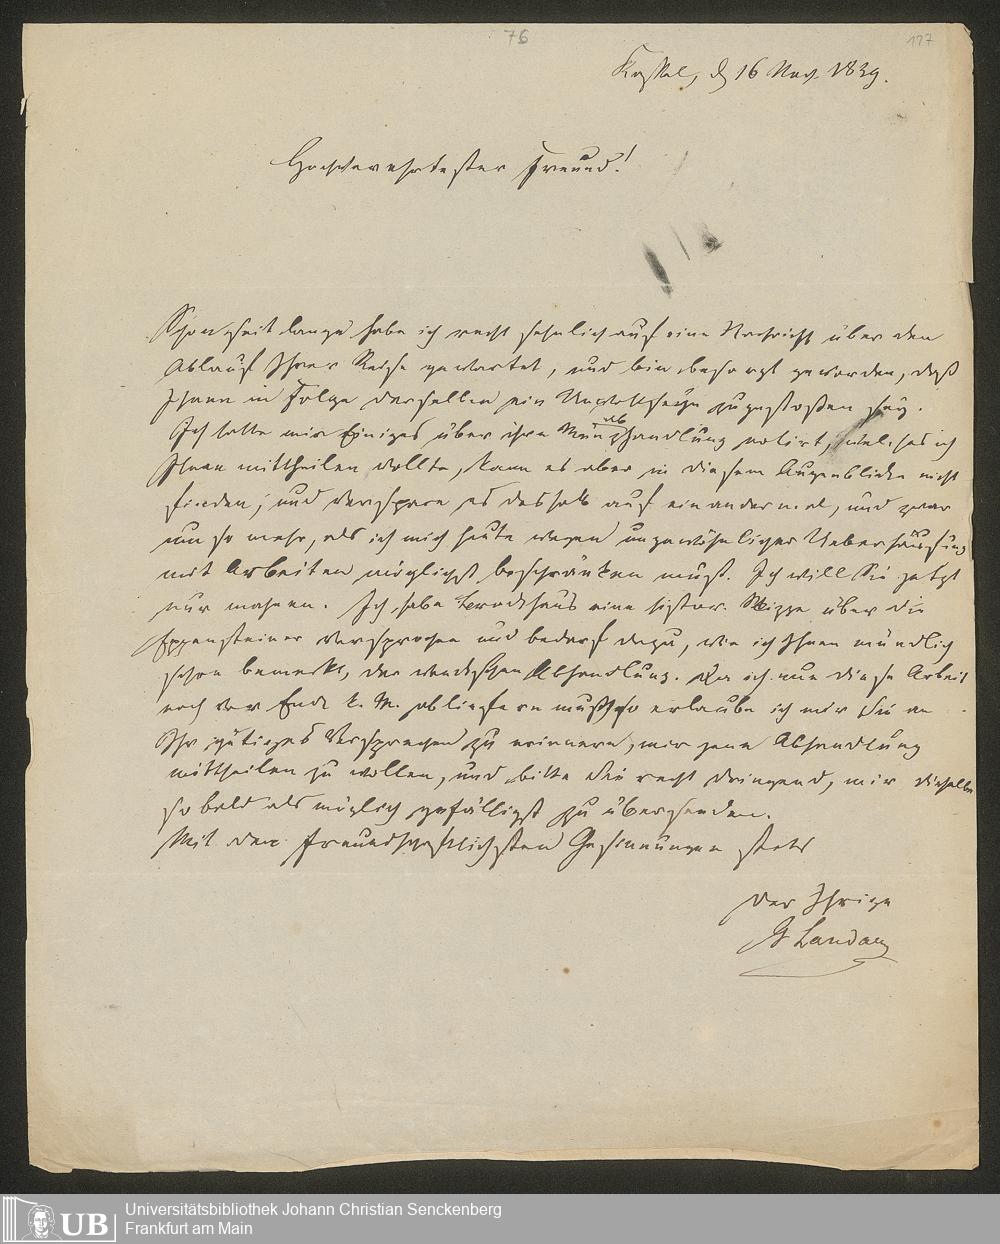 76
117
Kassel, d 16 Nov. 1839.
Hochverehrtester Freund!
Schon seit lange habe ich recht sehnlich auf eine Nachricht über den
Ablauf Ihrer Reise gewartet, und bin besorgt geworden, daß
Ihnen in Folge derselben ein Unwohlseyn zugestoßen sey.
Ich hatte mir Einiges über ihre Münzabhandlung notirt, welches ich
Ihnen mittheilen wollte, kann es aber in diesem Augenblicke nicht
finden, und verspare es deshalb auf ein andermal, und zwar
um so mehr, als ich mich heute wegen ungewöhnlicher Ueberhäufung
mit Arbeiten möglichst beschränken muß. Ich will Sie jetzt
nur mahnen. Ich habe Brockhaus eine histor. Skizze über die
Eppensteiner versprochen und bedarf dazu, wie ich Ihnen mündlich
schon bemerkt, der Abhandlung. Da ich nun diese Arbeit
noch vor Ende k. M. abliefern muß, so erlaube ich mir Sie an
Ihr gütiges Versprechen zu erinnern, mir jene Abhandlung
mittheilen zu wollen, und bitte Sie recht dringend, mir dieselbe
so bald als möglich gefälligst zu übersenden.
Mit den freundschaftlichsten Gesinnungen stets
der Ihrige
G Landau
UB
Universitätsbibliothek Johann Christian Senckenberg
Frankfurt am Main